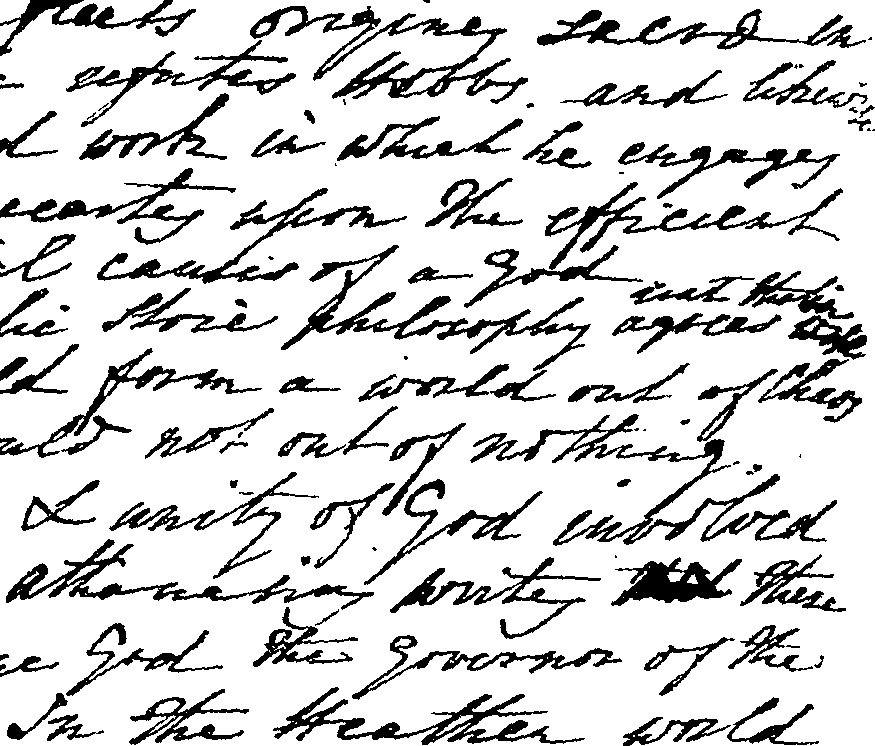 origines sacra in
refutes Hobbs. and likewise
work in which he engages
upon the efficient
causes of a God
Stoic philosophy agrees
form a world out of Chaos
not out of nothing.
& unity of God involved
athanasius writes these
God the Governor of the
In the Heathen world